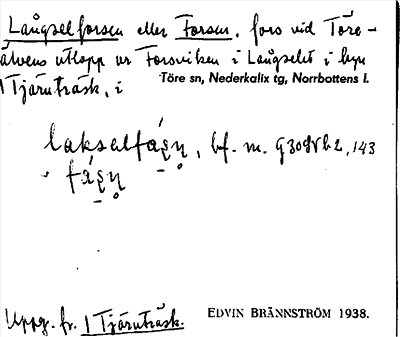 Långselforsen eller Forsen, fors vid Töre-
älvens utlopp ur Forsviken i Långselet i byn
1 Tjärnträsk, i Töre sn, Nederkalix tg, Norrbottens l.
bf. m.
Uppg. fr. 1 Tjärnträsk. EDVIN BRÄNNSTRÖM 1938.